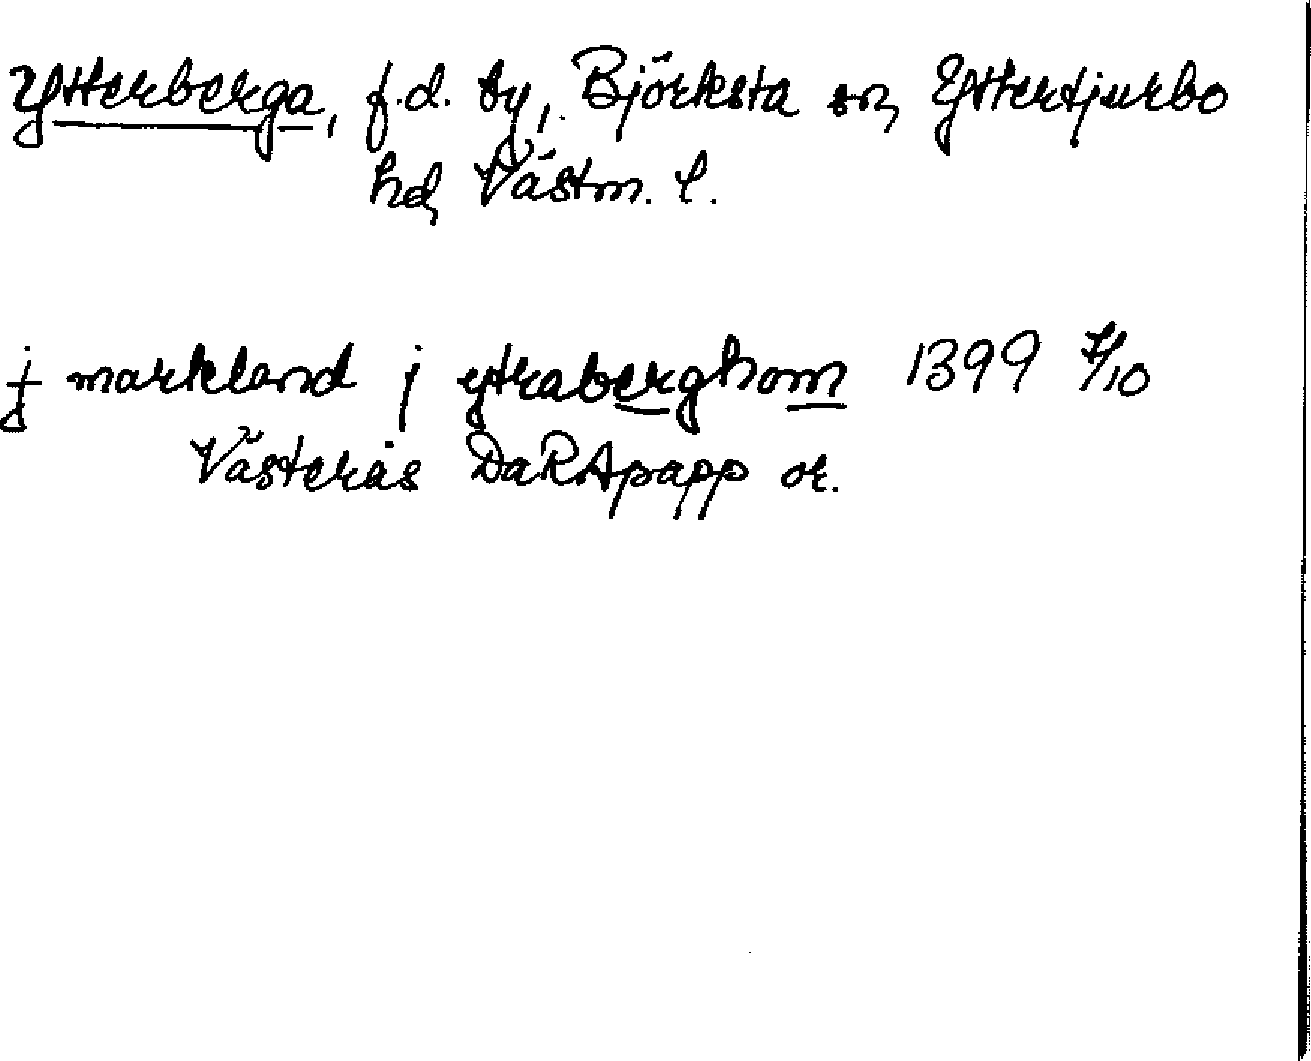 Ytterberga, f.d. by, Björksta sn, Yttertjurbo
hd, Västm. l.
j markland j ytraberghom 1399 7/10
Västerås DaRApapp or.